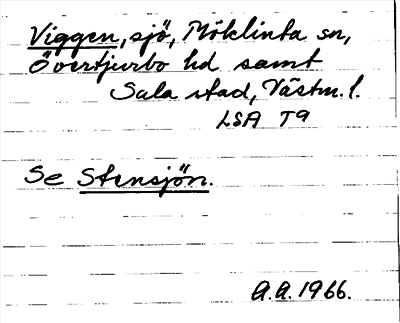 Viggen, sjö, Möklinta sn,
Övertjurbo hd samt
Sala stad, Västm. l.
LSA T9
Se Stensjön.
A.A. 1966.